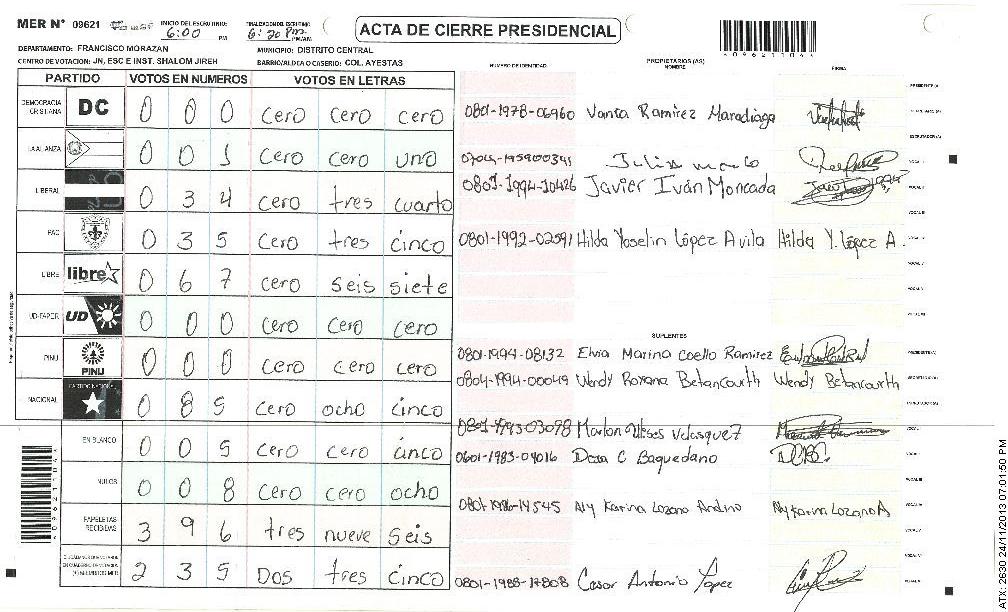 MER Nº 09621 INICIO DEL ESCRUTINIO: 6:00 PM FINALIZACION DEL ESCRUTINIO: 6:20 Pm PM/AM ACTA DE CIERRE PRESIDENCIAL
DEPARTAMENTO: FRANCISCO MORAZAN MUNICIPIO: DISTRITO CENTRAL
CENTRO DE VOTACION: JN, ESC E INST. SHALOM JIREH BARRIO/ALDEA O CASERIO: COL. AYESTAS
NUMERO DE IDENTIDAD PROPIETARIOS (AS) NOMBRE FIRMA
PARTIDO VOTOS EN NUMEROS VOTOS EN LETRAS
DEMOCRACIA CRISTIANA DC 0 0 0 cero cero cero
0801-1978-06960 Vanta Ramirez Maradiaga
LA ALIANZA 0 0 1 cero cero uno
Julis
LIBERAL 0 3 4 cero tres cuarto
0801-1994-10426 Javier Iván Moncada
PAC 0 3 5 cero tres cinco
0801-1992-02591 Hilda Yoselin López Avila Hilda Y. López A.
LIBRE libre 0 6 7 cero seis siete
UD-FAPER UD 0 0 0 cero cero cero
SUPLENTES
PINU PINU 0 0 0 cero cero cero
0801-1994-08132 Elvia Marina Coello Ramirez
0804-1994-00049 Wendy Roxana Betancourth Wendy Betancourth
NACIONAL PARTIDO NACIONAL 0 8 5 cero ocho cinco
Marlon Ulises Velasquez
EN BLANCO 0 0 5 cero cero cinco
0601-1983-04016 Dora C Baquedano
NULOS 0 0 8 cero cero ocho
0801-1986-14545 Aly Karina Lozano Andino Aly Karina Lozano A
PAPELETAS RECIBIDAS 3 9 6 tres nueve seis
2 3 5 Dos tres cinco
0801-1988-17808 Cesar Antonio Yopez
ATX: 2630 24/11/2013 07:01:50 PM